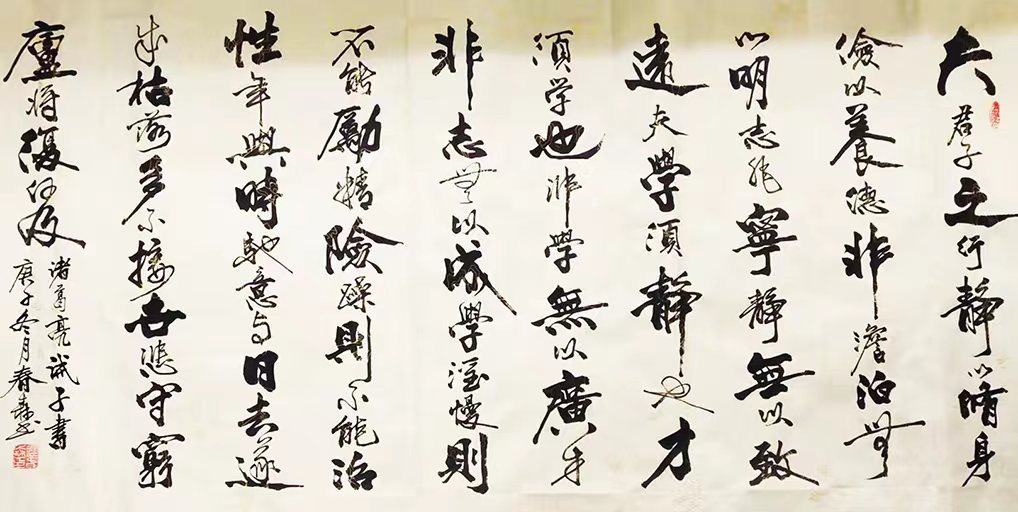 夫君子之行靜以脩身
儉以養德非澹泊無
以明志非寧靜無以致
遠夫學須靜也才
須学也非學無以廣才
非志無以成學淫慢則
不能勵精險躁則不能治
性年與時馳意与日去遂
成枯落多不接世悲守窮
廬將復何及
诸葛亮诫子書
庚子冬月春书